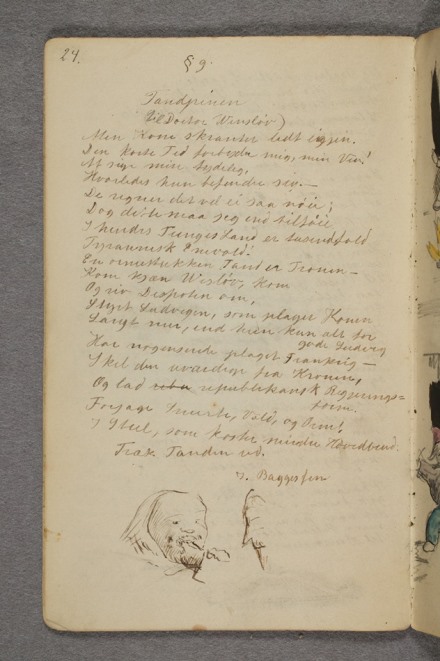 24.
§ 9.
Tandpinen
(til Doctor Winsløv)
Men Kone skranter lidt igjen.
Den korte Tid forbyder mig, min Ven!
At sige mere tydelig,
Hvorledes hun befinder sig. —
De regner det vel ei saa nøie;
Dog dette maa jeg end tilføie
I hendes Tunges Land er tusindfold
Tyrannisk Enevold:
En Tand er Tronen —
Kom kjæn Winsløv, kom
Og riv Despoten om,
Styrt Ludvigen, som plager Konen
Langt mer, end hiin kun alt for
gode Ludvig
Har nogensinde plaget Frankrig —
Skil den fra Kronen,
Og lad republikansk Regjerings=
form.
Forjage Smerte, Vold, og Orm!
I Steel, som koster mindre Hovedbrud.
Træk Tanden ud.
J. Baggesen